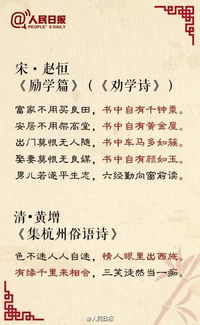 @人民日报
PEOPLE'S DAILY
宋·赵恒
《励学篇》(《劝学诗》)
富家不用买良田，书中自有千钟粟。
安居不用架高堂，书中自有黄金屋。
出门莫恨无人随，书中车马多如簇。
娶妻莫恨无良媒，书中自有颜如玉。
男儿若遂平生志，六经勤向窗前读。
清·黄增
《集杭州俗语诗》
色不迷人人自迷，情人眼里出西施。
有缘千里来相会，三笑徒然当一痴。
@人民日报